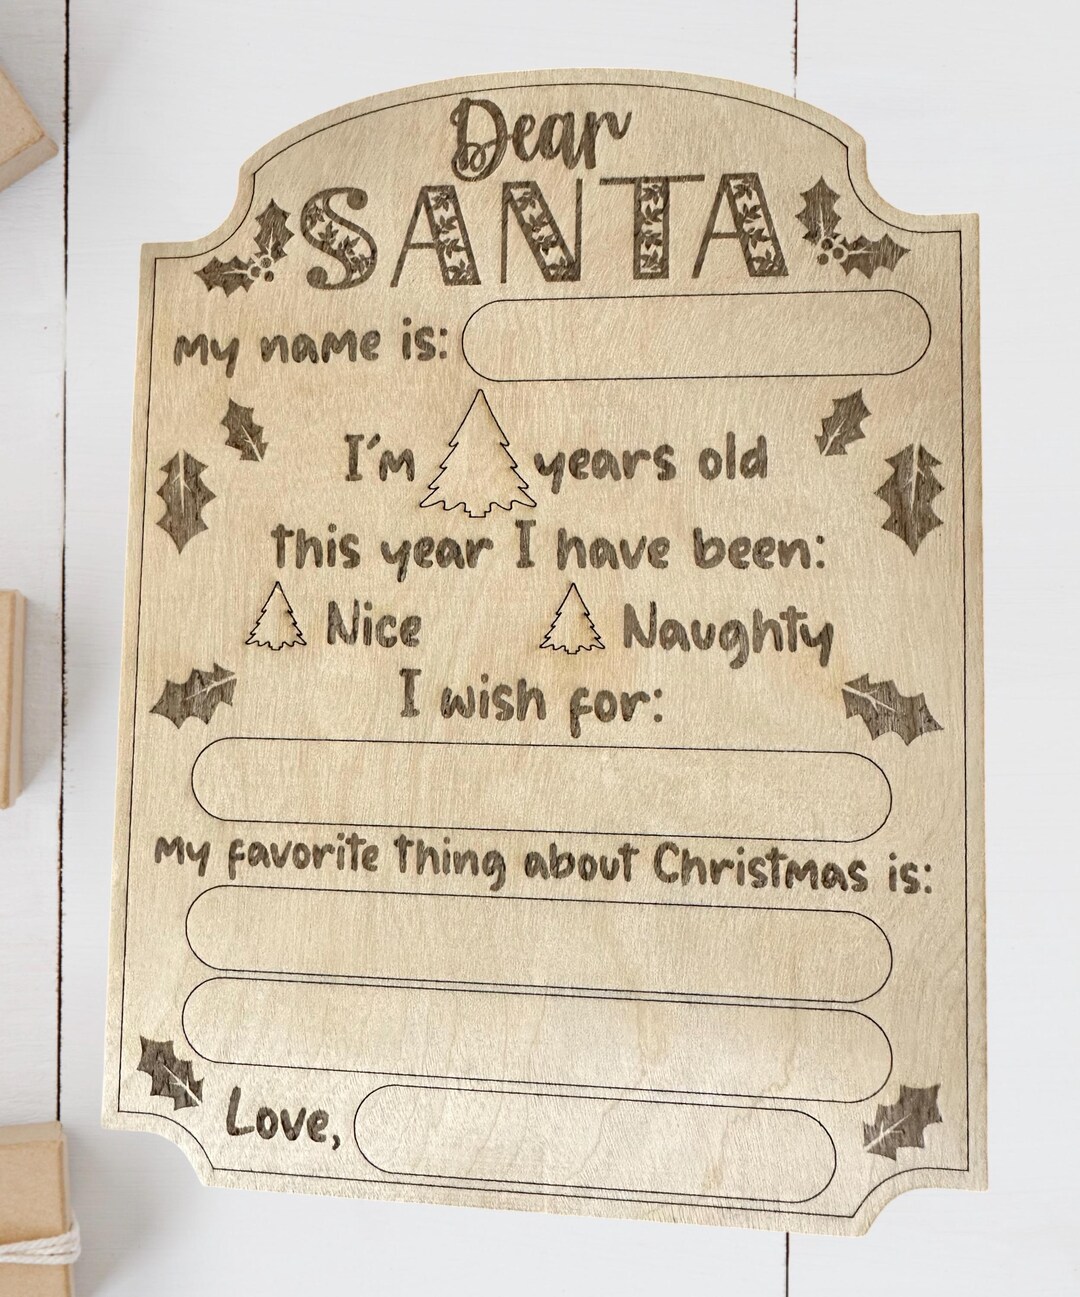 Dear
SANTA
my name is:
I'm years old
this year I have been:
Nice Naughty
I wish for:
my favorite thing about Christmas is:
Love,